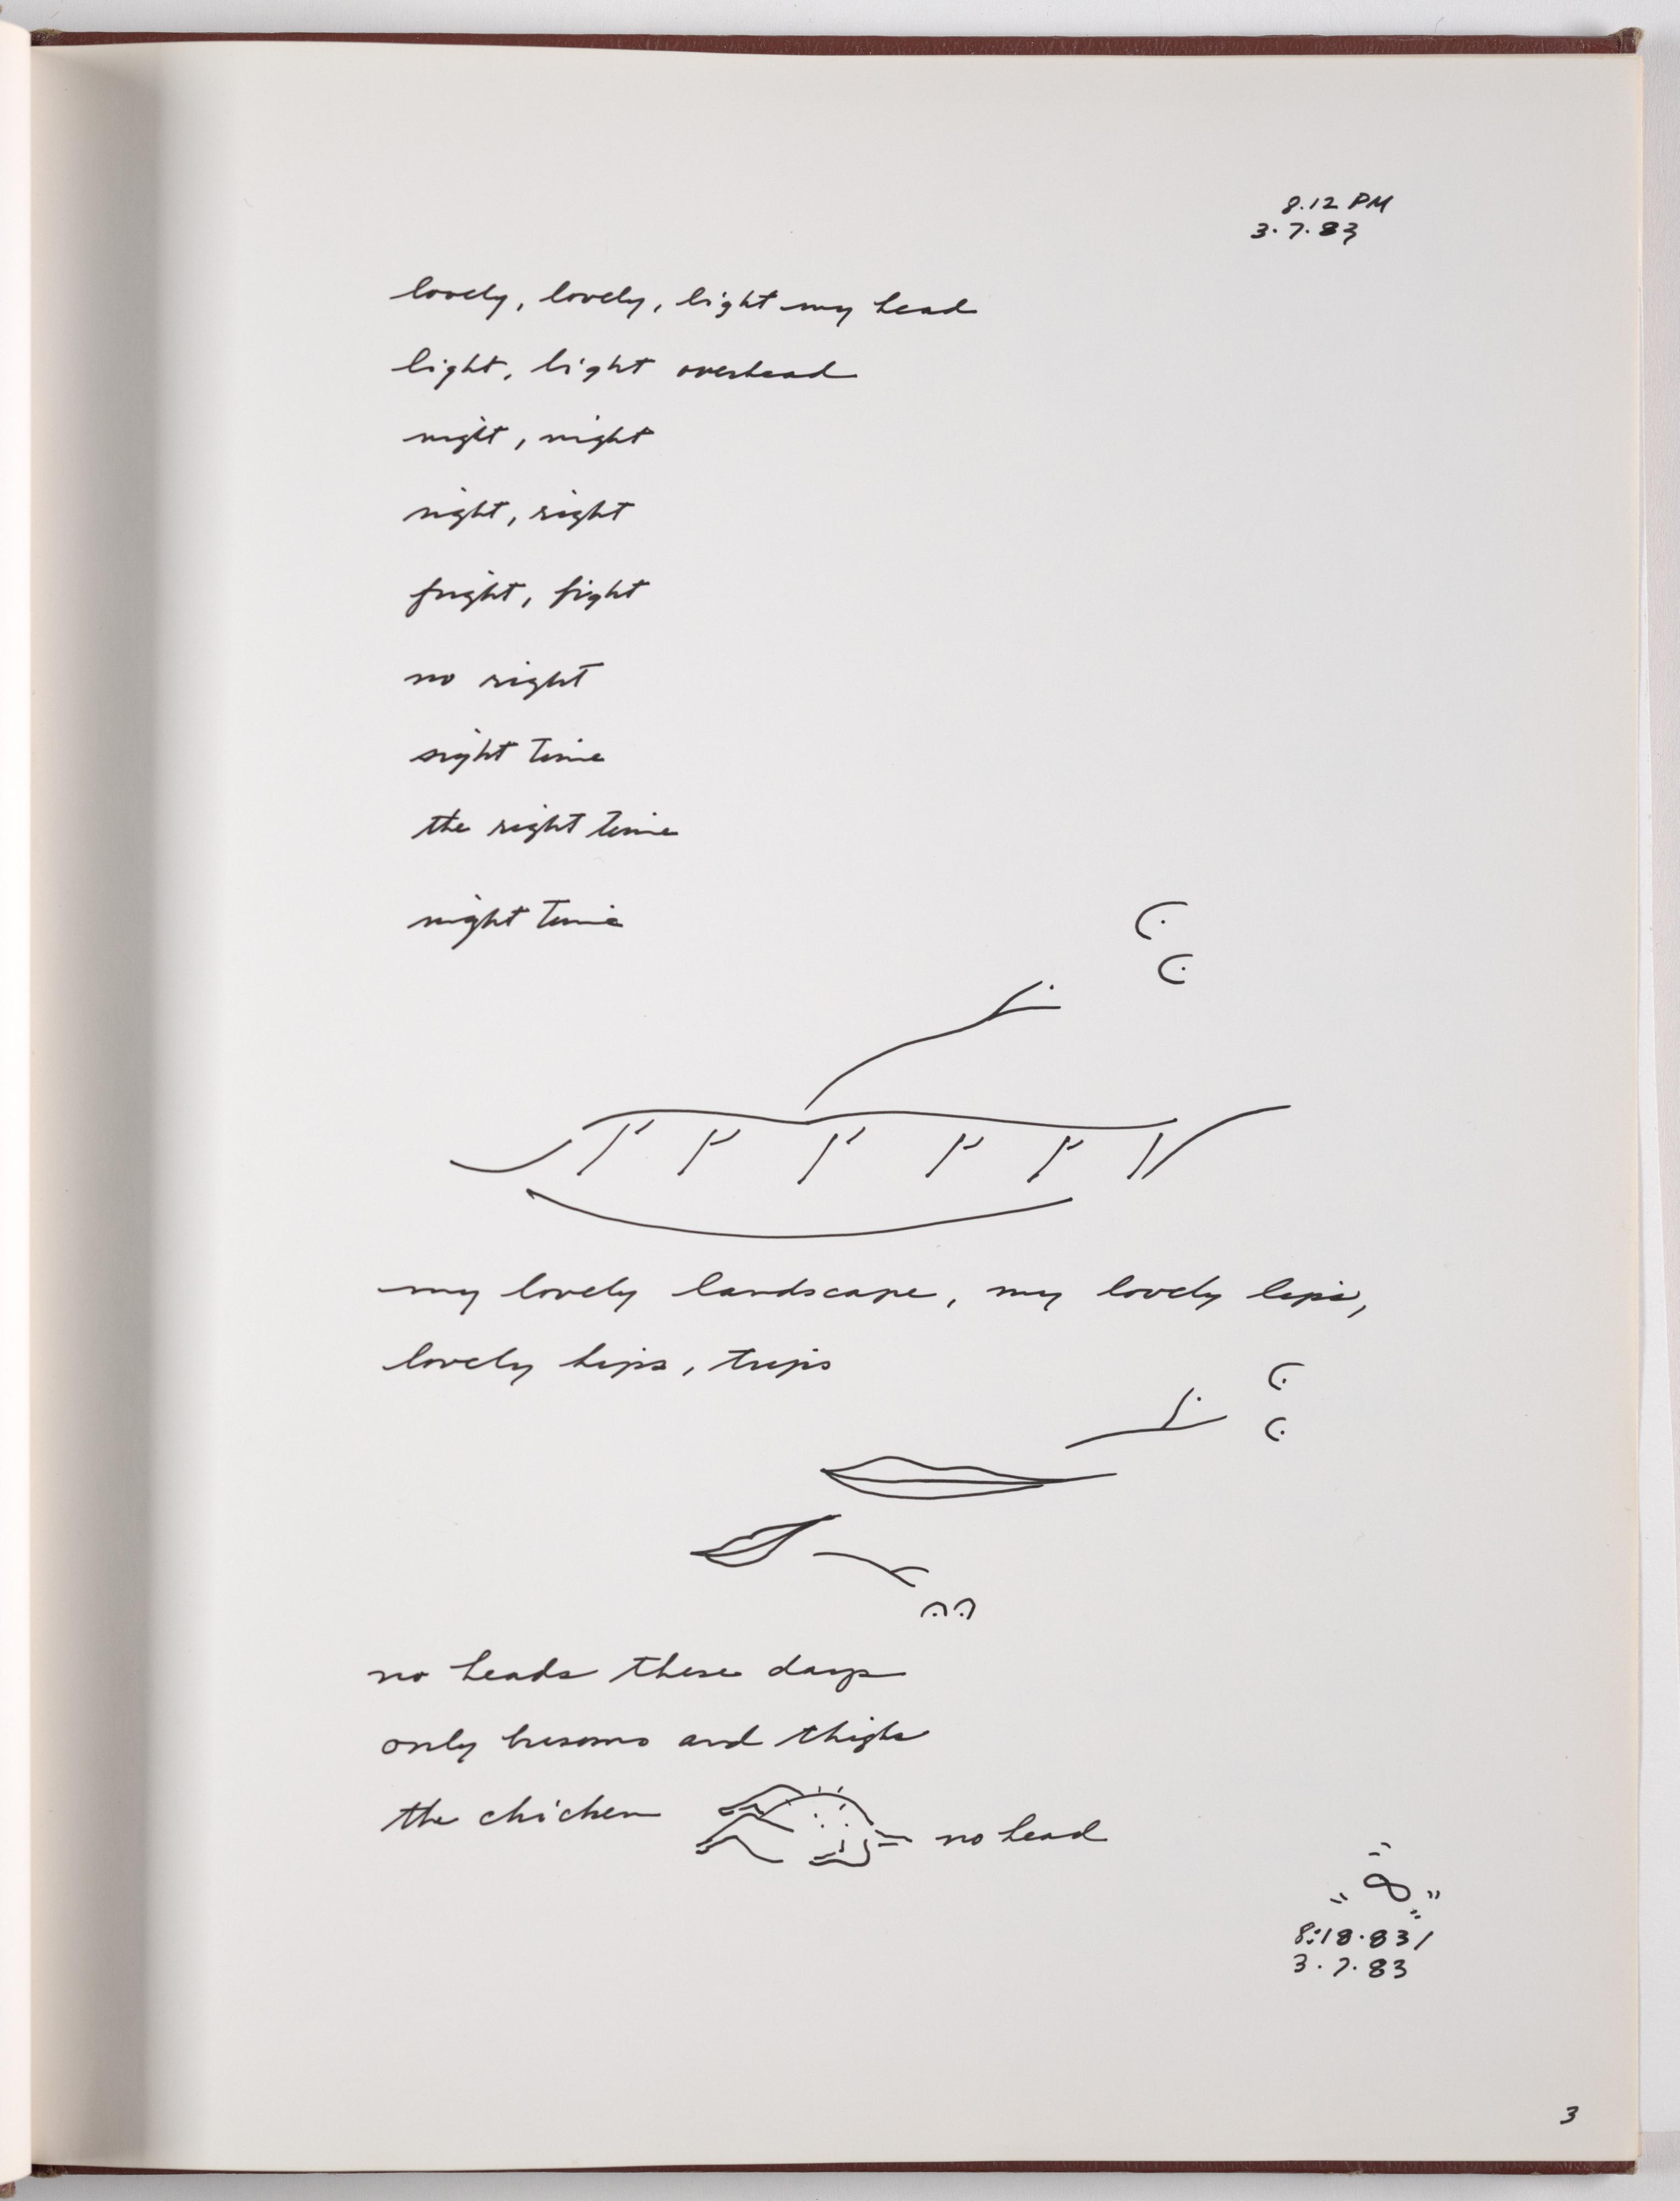 8.12 PM
3.7.83
lovely, lovely, light my head
light, light overhead
night, night
night, right
fright, fight
no right
night time
the right time
night time
my lovely landscape, my lovely lips,
lovely hips, trips
no heads these days
only bosoms and thighs
the chicken no head
8:18.83/
3.7.83
3